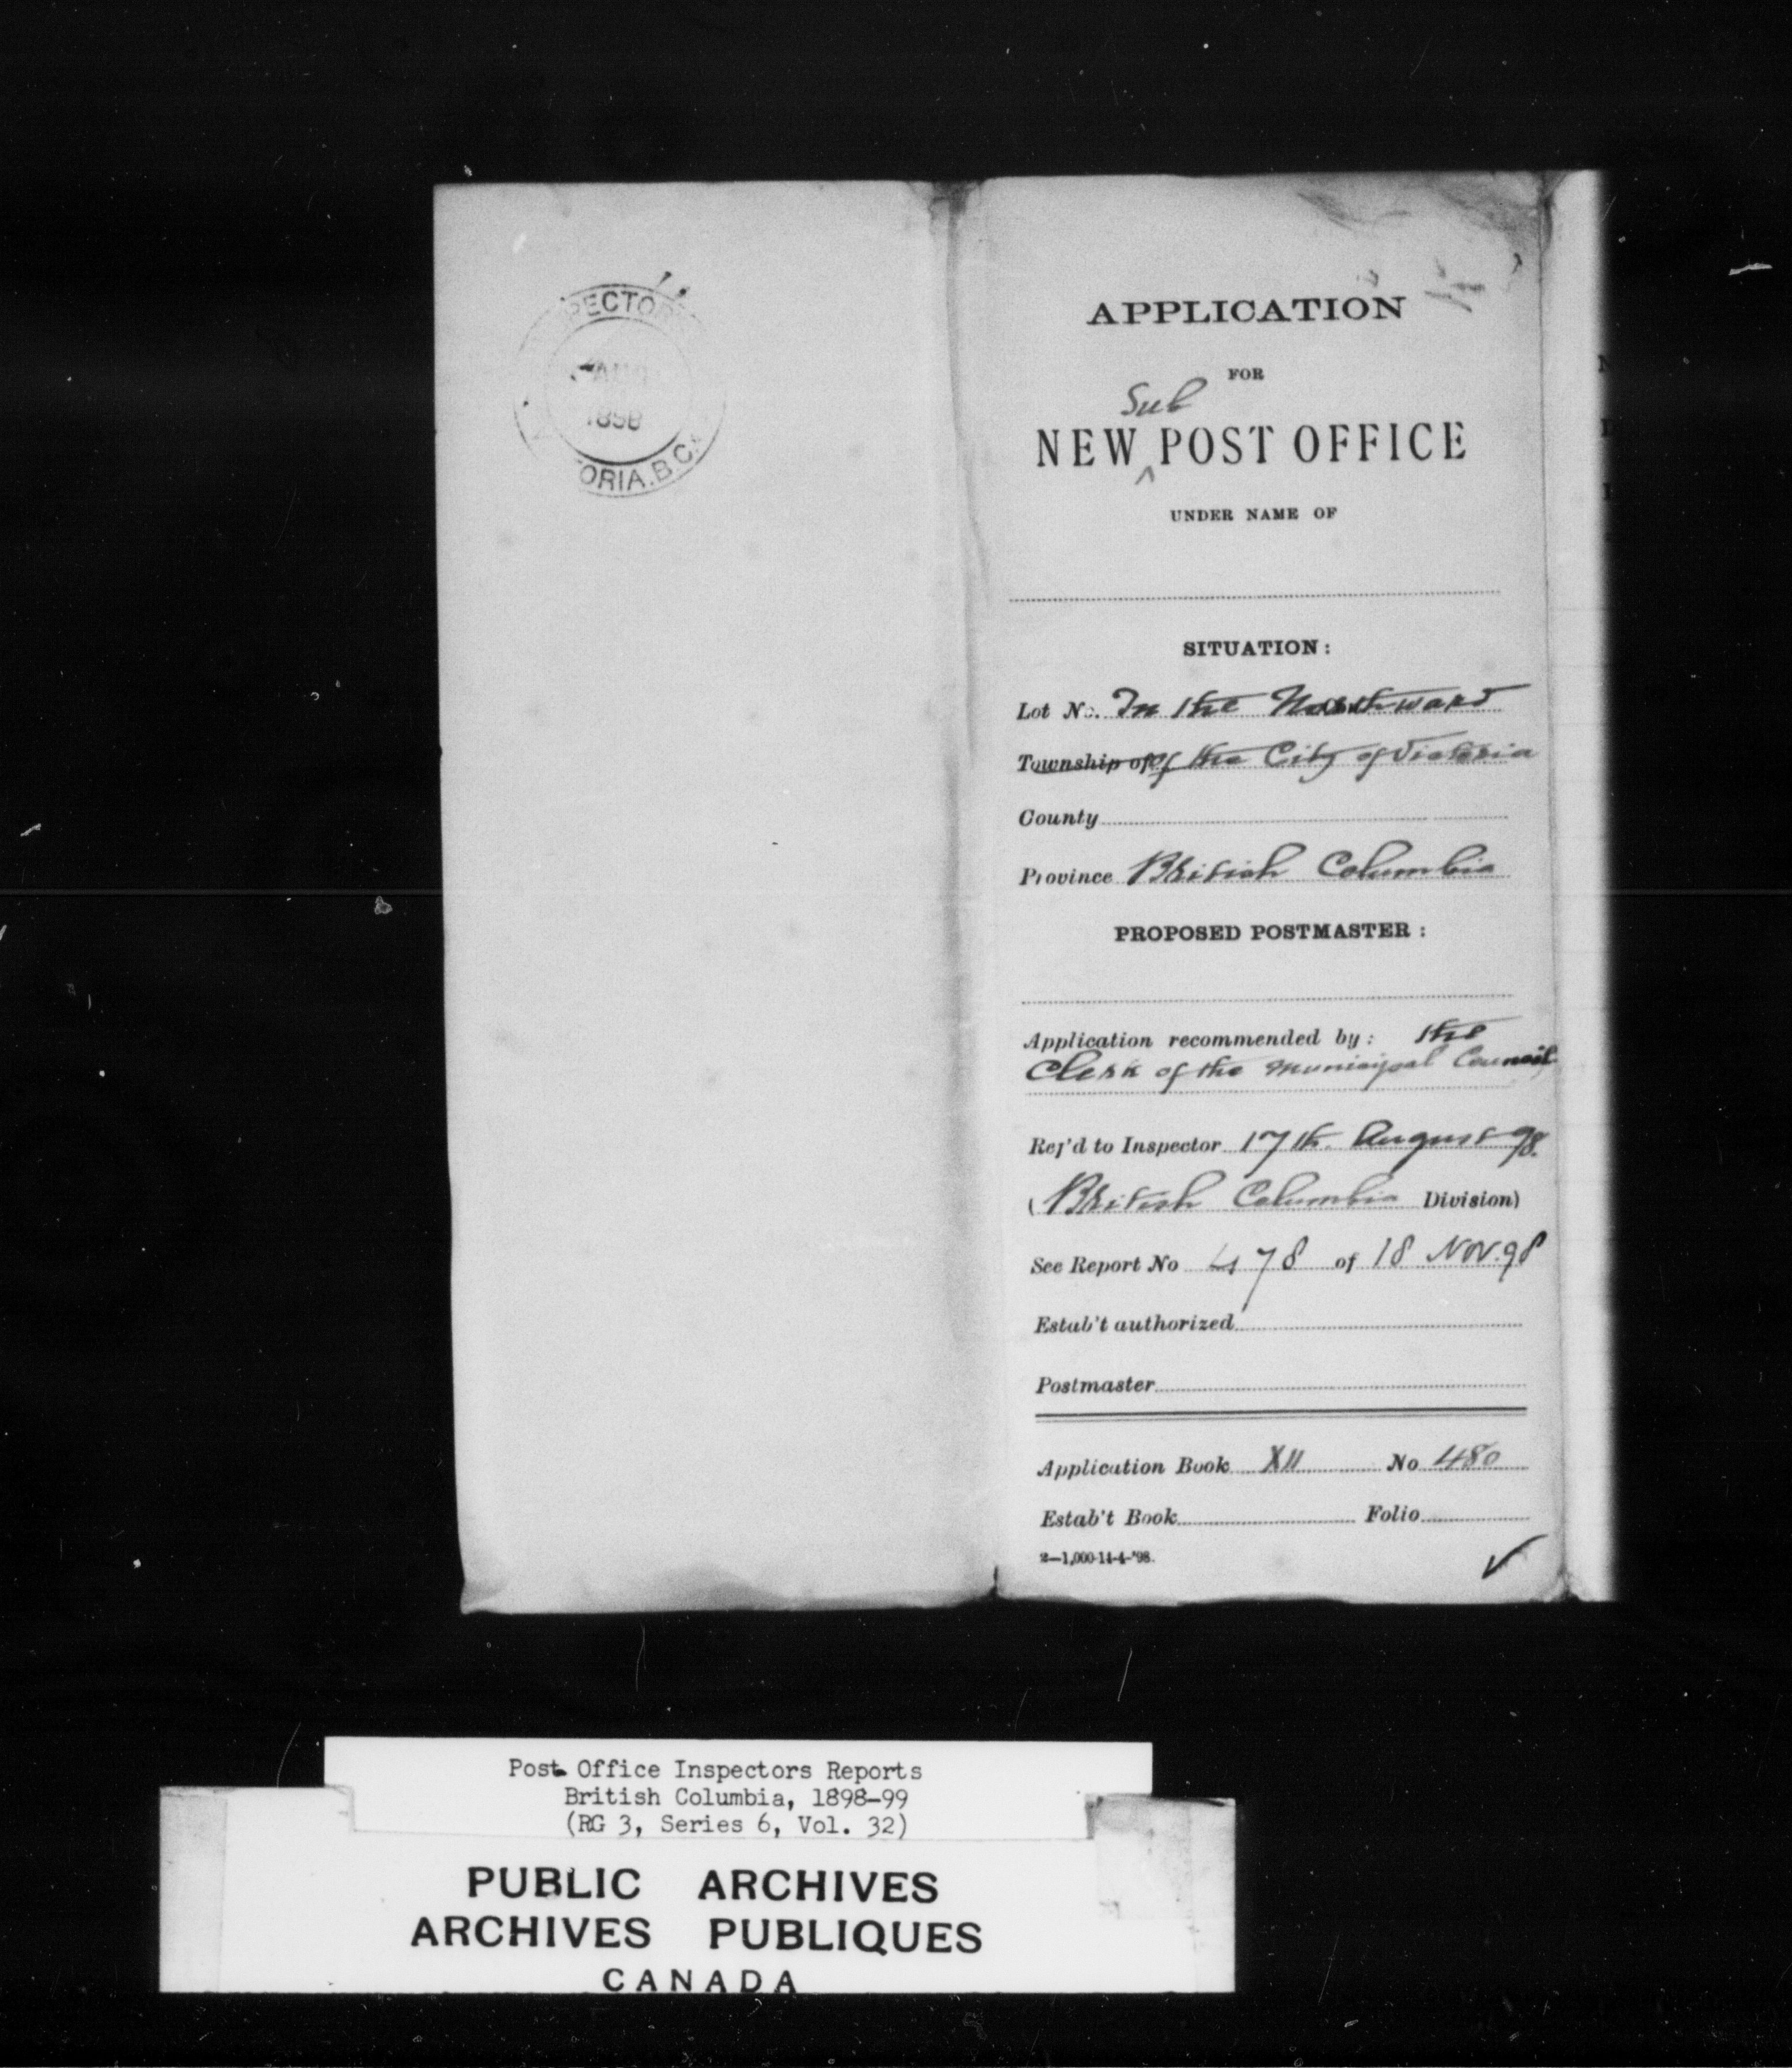 PECTOR
AUG
1898
ORIA.B.C.
APPLICATION
FOR
Sub
NEW ^ POST OFFICE
UNDER NAME OF
SITUATION:
Lot No. In the North ward
Township of of the City of Victoria
County
Province British Columbia
PROPOSED POSTMASTER:
Application recommended by: the
Clerk of the Municipal Council
Ref'd to Inspector 17th. August 98.
(British Columbia Division)
See Report No 478 of 18 Nov. 98
Estab't authorized
Postmaster
Application Book XII No 480
Estab't Book Folio
2—1,000-14-4-'98.
Post Office Inspectors Reports
British Columbia, 1898-99
(RG 3, Series 6, Vol. 32)
PUBLIC ARCHIVES
ARCHIVES PUBLIQUES
CANADA